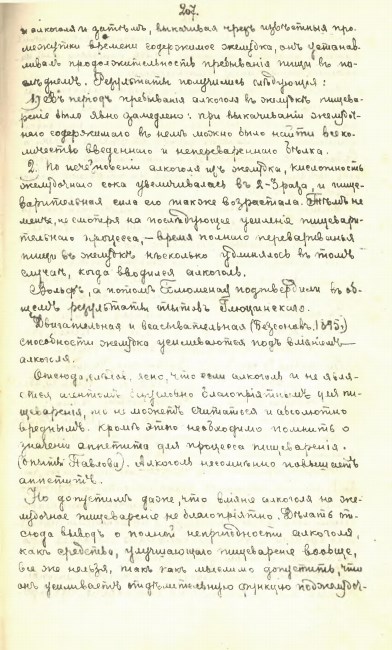 207.
и алкоголя и затѣмъ, выкачивая чрезъ извѣстные про-
межутки времени содержимое желудка, онъ устана-
вливалъ продолжительность пребыванія пищи въ по-
слѣднемъ. Результаты получились слѣдующіе:
1) Въ періодъ пребыванія алкоголя въ желудкѣ пищева-
реніе было явно замедлено: при выкачиваніи желудоч-
наго содержимаго въ немъ можно было найти все ко-
личество введеннаго и непереваренного бѣлка.
2. По исчезновеніи алкоголя изъ желудка, кислотность
желудочнаго сока увеличивалась въ 2-3 раза, и пище-
варительная сила его также возрастала. Тѣмъ не
менѣе, не смотря на послѣдующее усиленіе пищевари-
тельнаго процесса, — время полнаго перевариванья
пищи въ желудкѣ нѣсколько удлинялось въ томъ
случаѣ, когда вводился алкоголь.
Вольфъ, а потомъ Блюменау подтвердили въ об-
щемъ результаты опытовъ Глюзинскаго.
Двигательная и всасывательная
способности желудка усиливаются подъ вліяніемъ
алкоголя.
Отсюда, ясно, что если алкоголь и не явля-
ется агентомъ благопріятнымъ для пи-
щеваренія, то не можетъ считаться и абсолютно
вреднымъ. Кромѣ этого необходимо помнить о
значеніи аппетита для процесса пищеваренія.
(опыты Павлова). Алкоголь несомнѣнно повышаетъ
аппетитъ.
Но допустимъ даже, что вліяніе алкоголя на же-
лудочное пищевареніе не благопріятно. Дѣлать от-
сюда выводъ о полной непригодности алкоголя,
какъ средства, улучшающаго пищевареніе вообще,
все же нельзя, такъ какъ мыслимо допустить, что
онъ усиливаетъ отдѣлительную функцію поджелудоч-